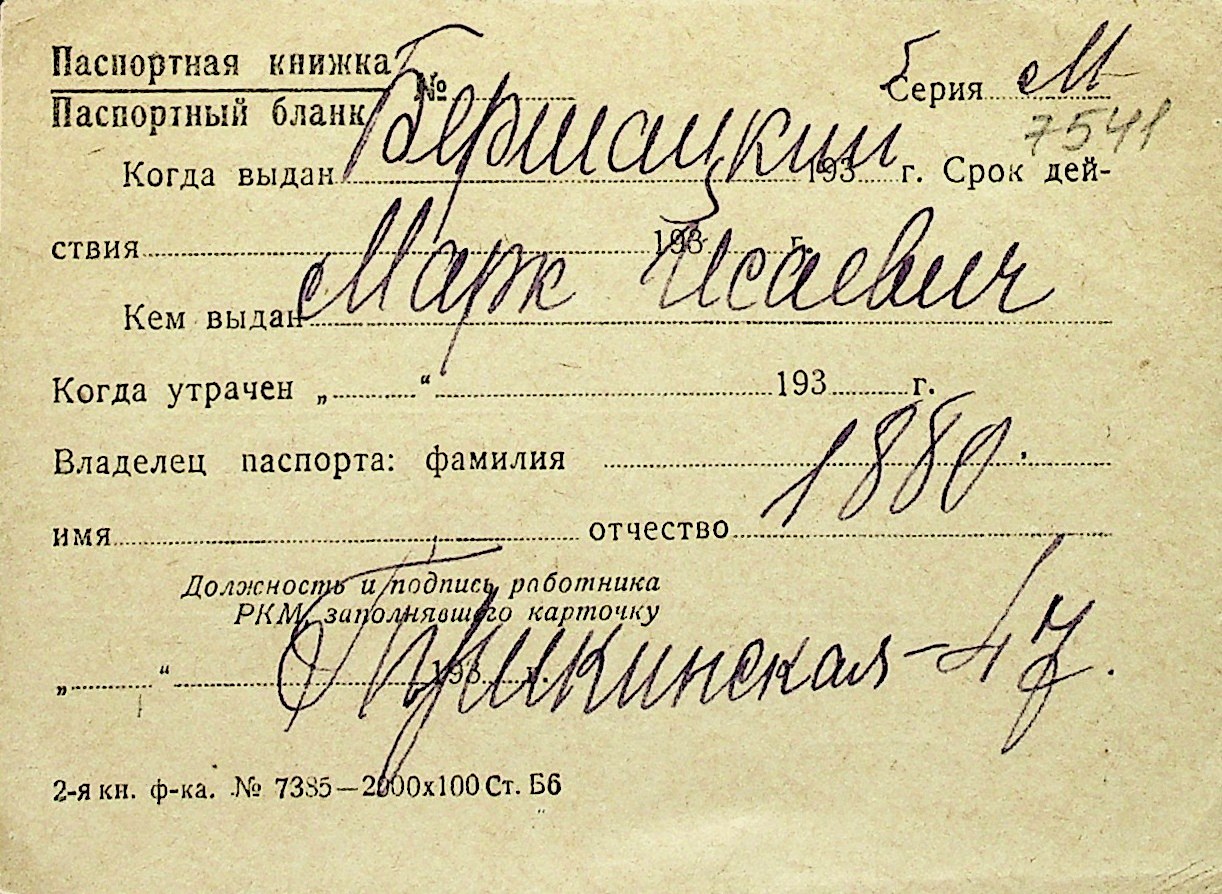 Паспортная книжка
Паспортный бланк
№ Серия М
7541
Бершацкий
Когда выдан 193 г. Срок дей-
ствия 193 г.
Марк Исаевич
Кем выдан
Когда утрачен „ “ 193 г.
Владелец паспорта: фамилия
1880.
имя отчество
Должность и подпись работника
РКМ, заполнявшего карточку
Пушкинская-47.
„ “ 193 г.
2-я кн. ф-ка. № 7385—2000х100 Ст. Б6